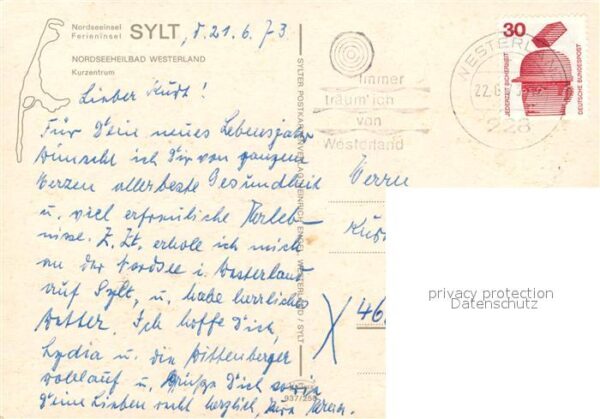 Nordseeinsel
Ferieninsel SYLT, d. 21.6.73.
NORDSEEHEILBAD WESTERLAND
Kurzentrum
Lieber Kurt!
Für Dein neues Lebensjahr
wünscht ich Dir von ganzem
Herzen allerbeste Gesundheit
u. viel erfreuliche Erleb-
nisse. Z. Zt. erhole ich mich
an der Nordsee i. Westerland
auf Sylt, u. habe herrliches
Wetter. Ich hoffe Dich,
Lydia u. die Wittenberger
wohlauf u. grüße Dich sowie
Deine Lieben recht herzlich,
SYLTER POSTKARTENVERLAG HEINRICH ENGEL WESTERLAND / SYLT
937/258
immer
träum' ich
von
Westerland
WESTERLAND
22.6
228
30
JEDERZEIT SICHERHEIT
DEUTSCHE BUNDESPOST
Herrn
46
privacy protection
Datenschutz